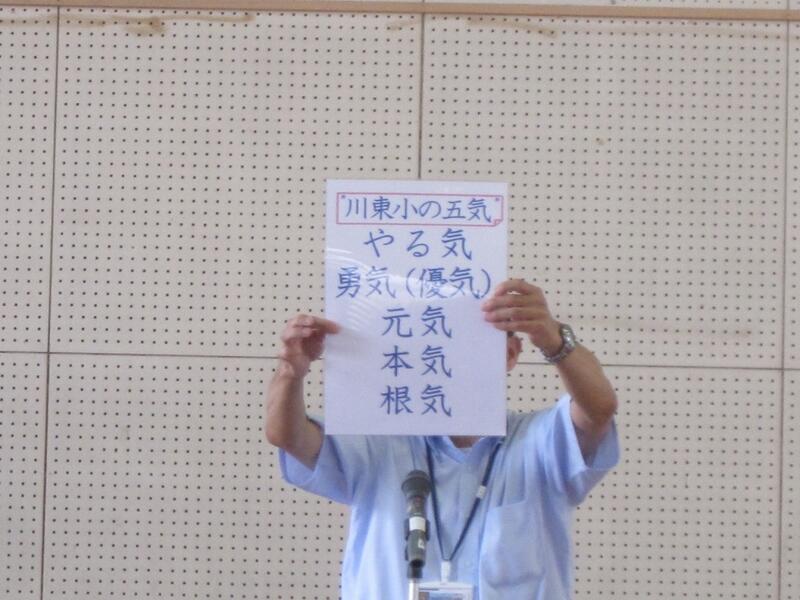 川東小の五気
やる気
勇気(優気)
元気
本気
根気